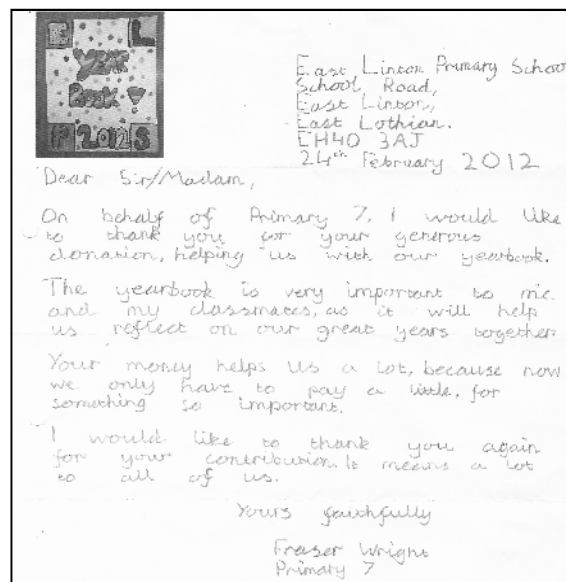 E L
YEAR
BOOK!
P 2012 S
East Linton Primary School
School, Road,
East Linton,
East Lothian.
EH40 3AJ
24th February 2012
Dear Sir/Madam,
On behalf of Primary 7, I would like
to thank you for your generous
donation, helping us with our yearbook.
The yearbook is very important to me
and my classmates, as it will help
us reflect on our great years together.
Your money helps us a lot, because now
we only have to pay a little, for
something so important.
I would like to thank you again
for your contribution. It means a lot
to all of us.
Yours faithfully
Fraser Wright
Primary 7